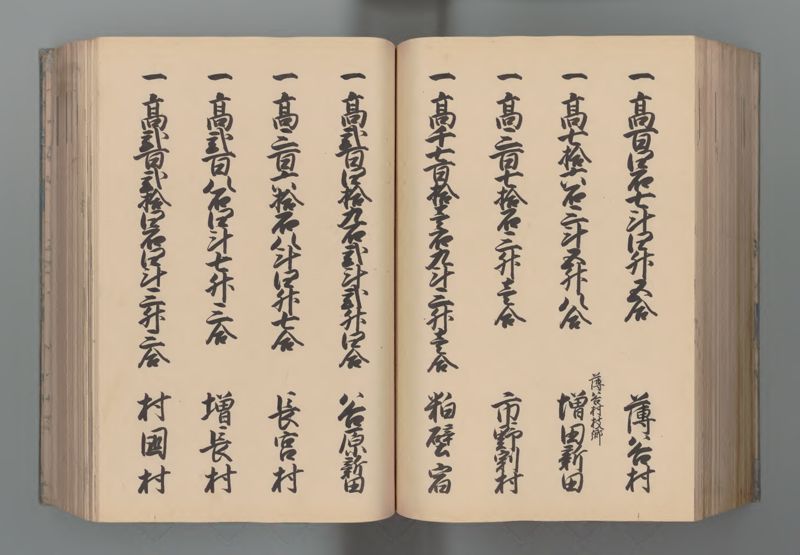 一 高百四石七斗四升五合 薄谷村
薄谷村枝郷
一 高七拾六石三斗五升八合 増田新田
一 高三百七拾石三升壱合 市野割村
一 高千七百拾壱石九斗三升壱合 粕壁宿
一 高弐百四拾九石弐斗弐升四合 八谷原新田
一 高三百六拾石八斗四升七合 長宮村
一 高弐百八石四斗七升三合 増長村
一 高弐百弐拾四石四斗三升三合 村國村